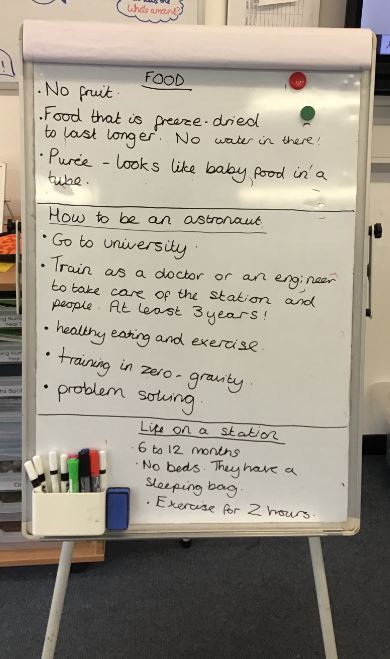 What's amount?
FOOD
• No fruit.
• Food that is freeze-dried
to last longer. No water in there!
• Purée - looks like baby food in a
tube.
How to be an astronaut
• Go to university.
• Train as a doctor or an engineer
to take care of the station and
people. At least 3 years!
• healthy eating and exercise.
• training in zero-gravity.
• problem solving.
Life on a station
• 6 to 12 months
• No beds. They have a
sleeping bag.
• Exercise for 2 hours.